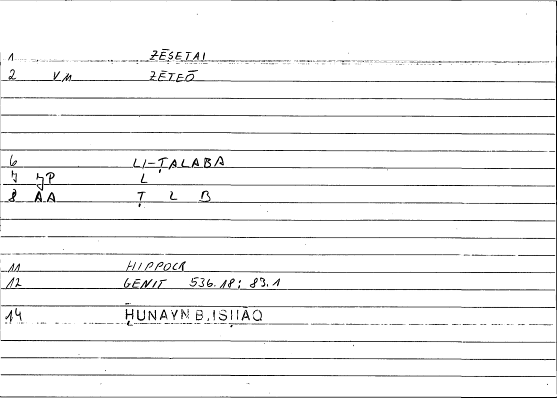 1 ZĒṢETAI
2 VM ZĒTEŌ
6 LI-ṬALABA
7 JP L
8 AA Ṭ L B
11 HIPPOCR
12 GENIT 536.18; 83.1
14 ḤUNAYN B.ISḤĀQ